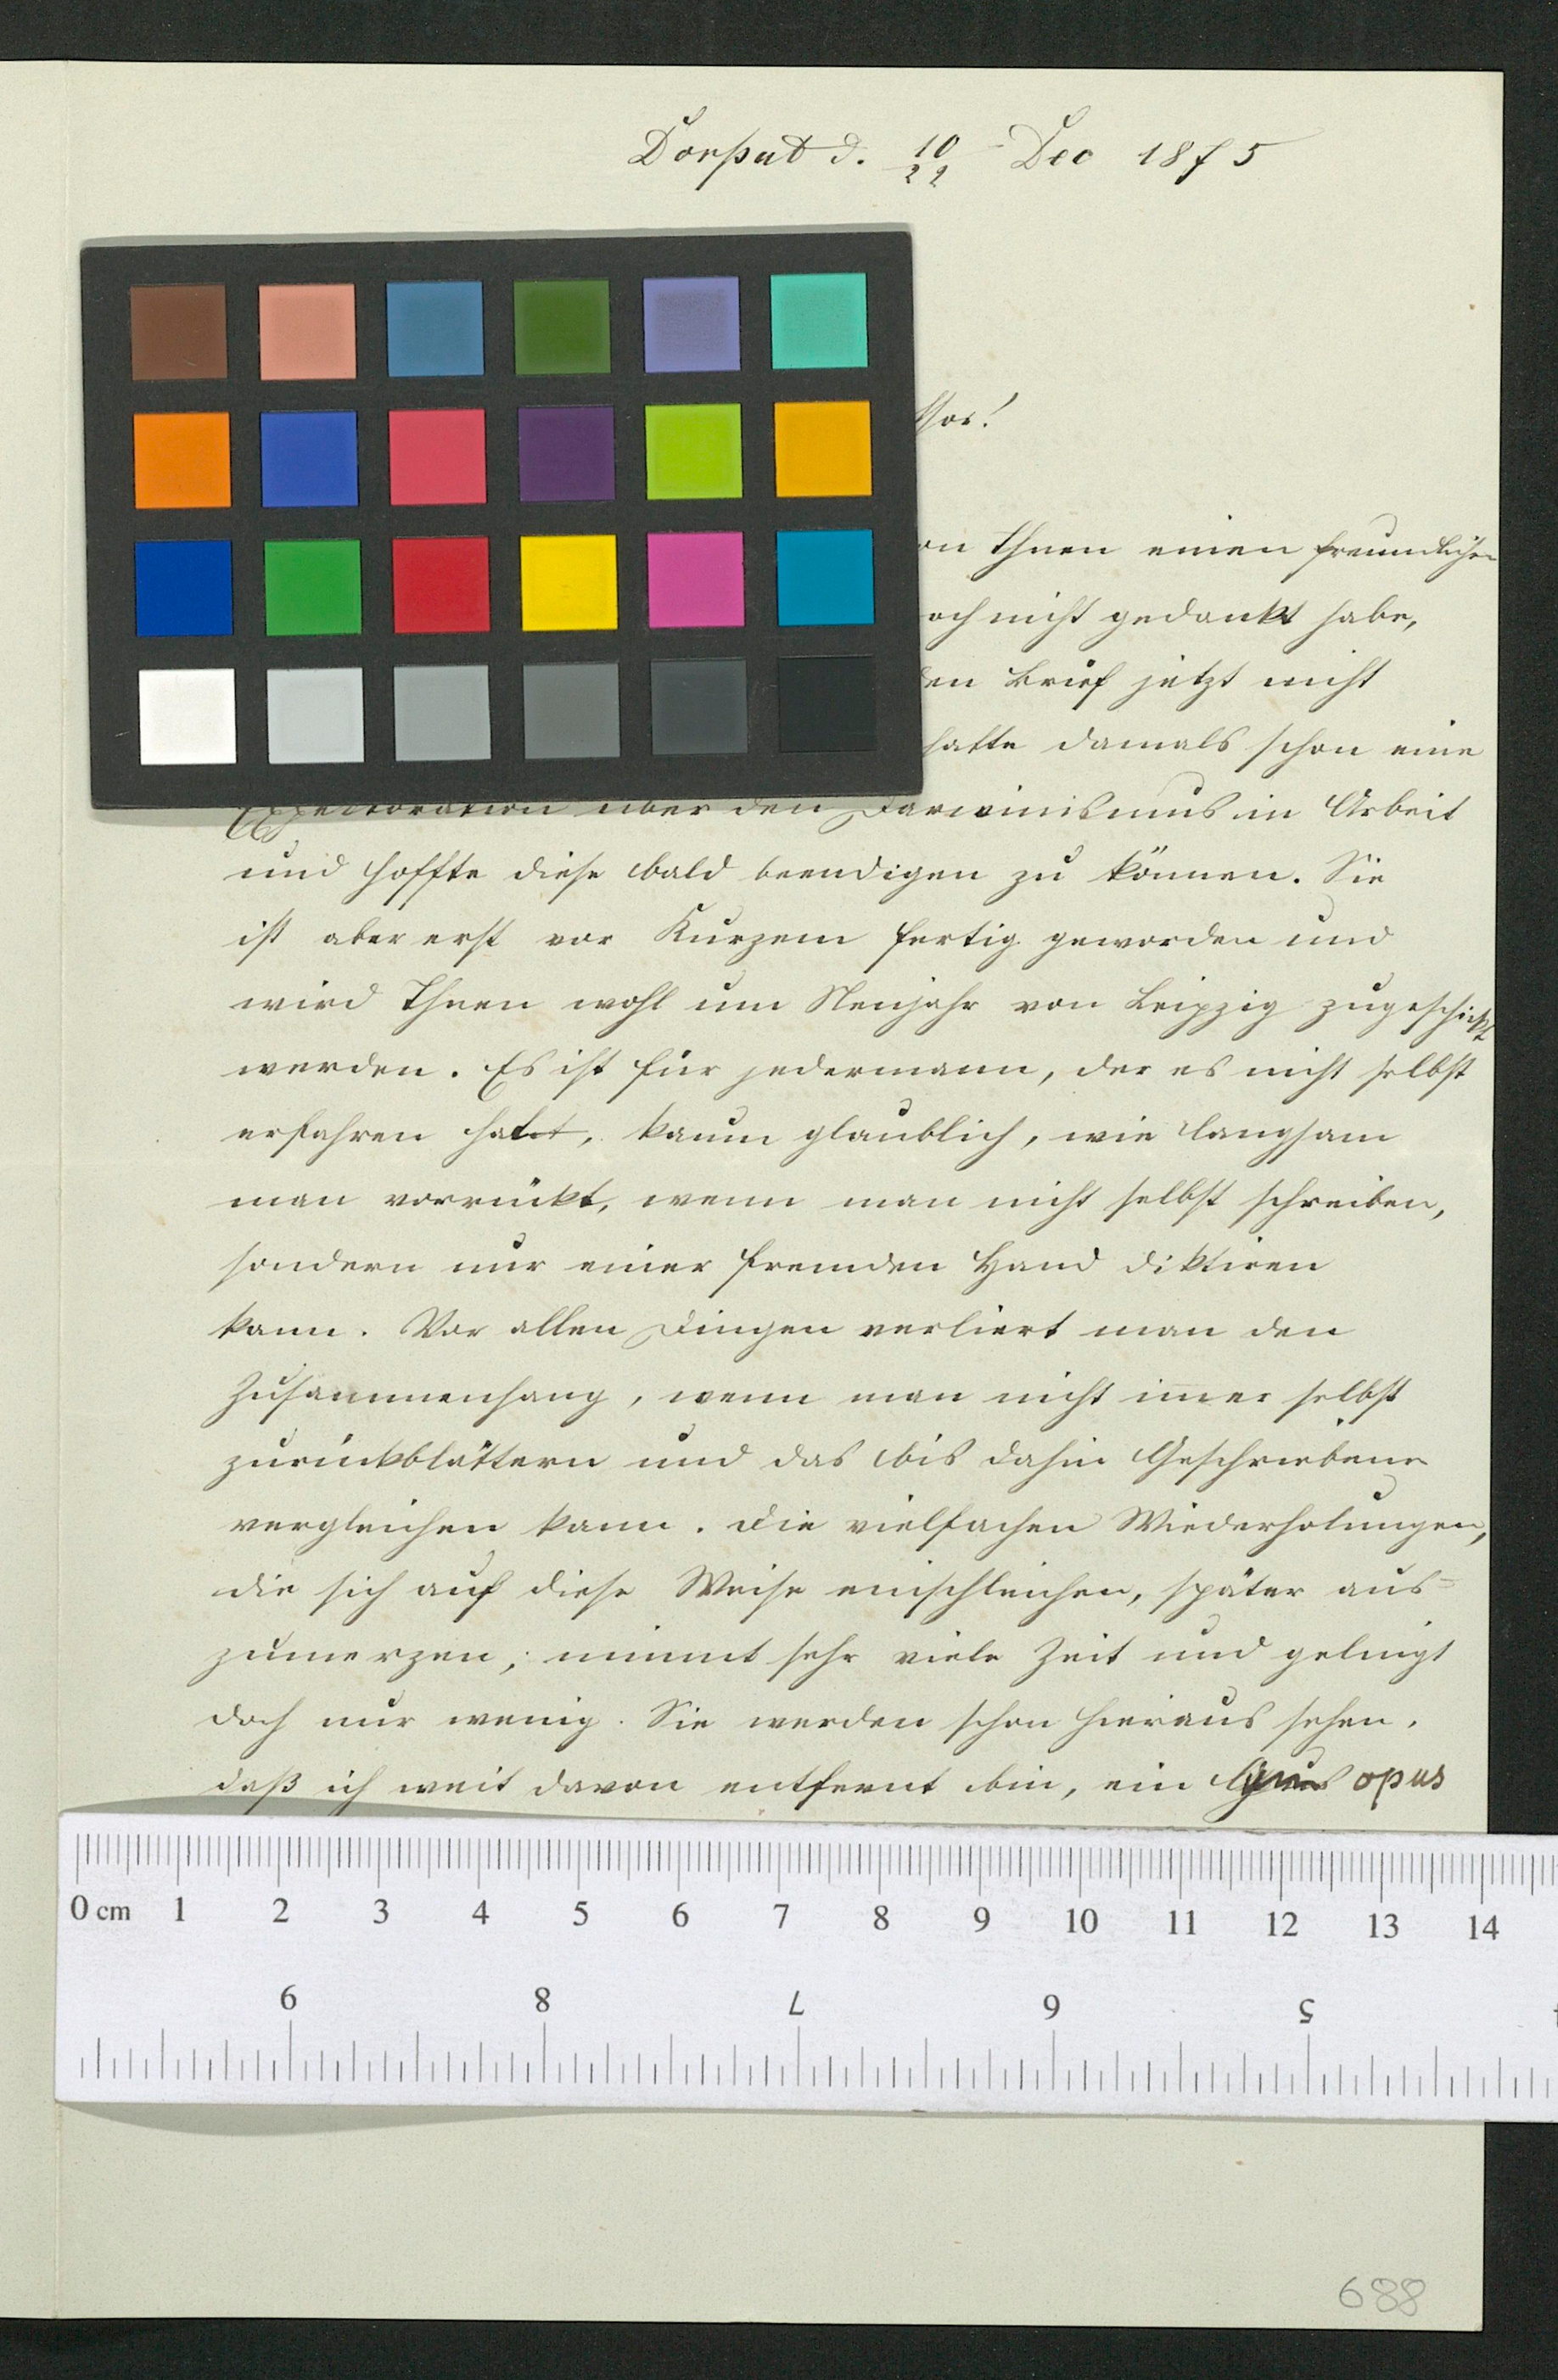 Dorpat d. 10/22 Dec 1875
ssor!
on Ihnen einen freundlichen
och nicht gedankt habe,
den Brief jetzt nicht
hatte damals schon eine
Expectoration über den Darwinismus in Arbeit
und hoffte diese bald beendigen zu können. Sie
ist aber erst vor Kurzem fertig geworden und
wird Ihnen wohl um Neujahr von Leipzig zugeschickt
werden. Es ist für jedermann, der es nicht selbst
erfahren hat, kaum glaublich, wie langsam
man vorrückt, wenn man nicht selbst schreiben,
sondern nur einer fremden Hand diktiren
kann. Vor allen Dingen verliert man den
Zusammenhang, wenn man nicht immer selbst
zurückblättern und das bis dahin Geschriebene
vergleichen kann. Die vielfachen Wiederholungen,
die sich auf diese Weise einschleichen, später aus-
zumerzen, nimmt sehr viele Zeit und gelingt
doch nur wenig. Sie werden schon hieraus sehen,
daß ich weit davon entfernt bin, ein opus
0 cm 1 2 3 4 5 6 7 8 9 10 11 12 13 14
9 8 7 6 5
688